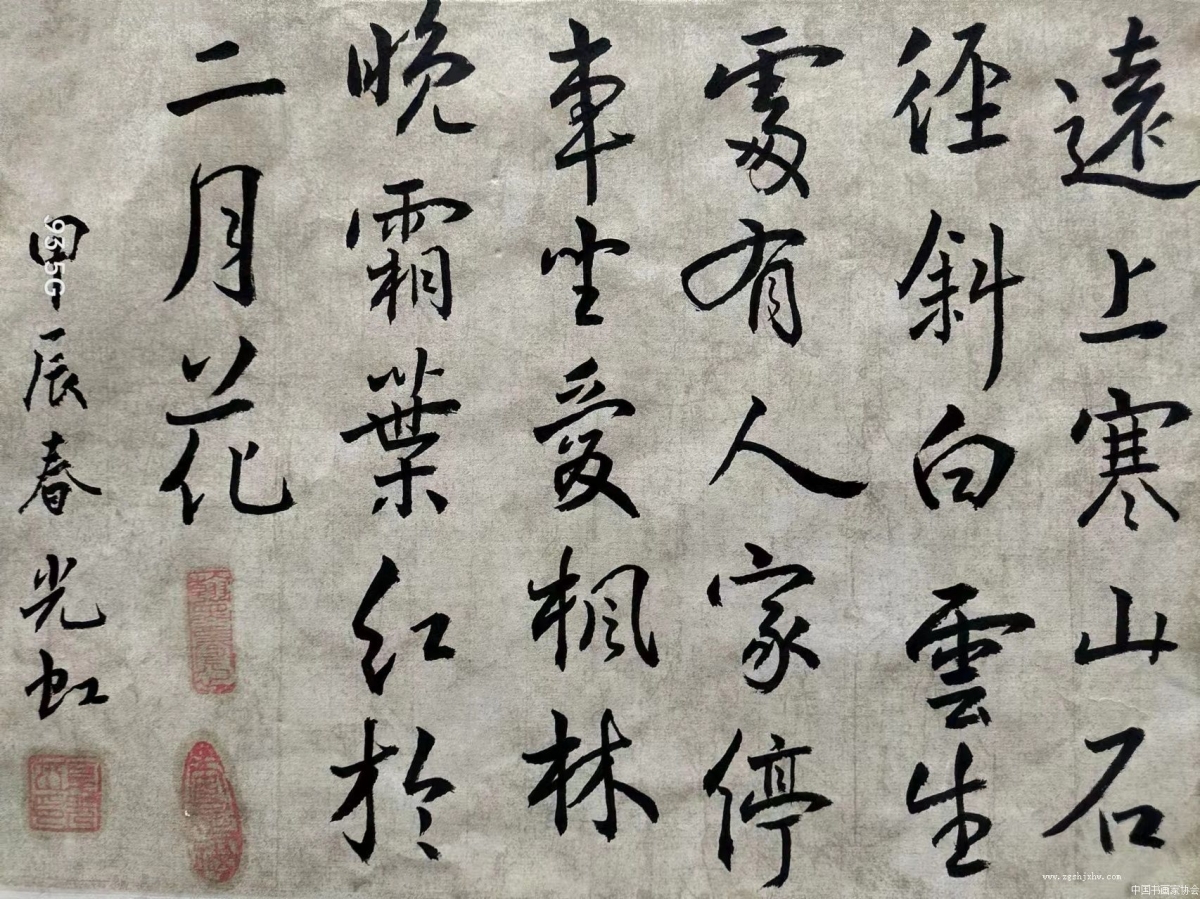 遠上寒山石
徑斜白雲生
處有人家停
車坐愛楓林
晚霜葉红於
二月花
甲辰春光虹
www.zgshjzhw.com
中国书画家协会